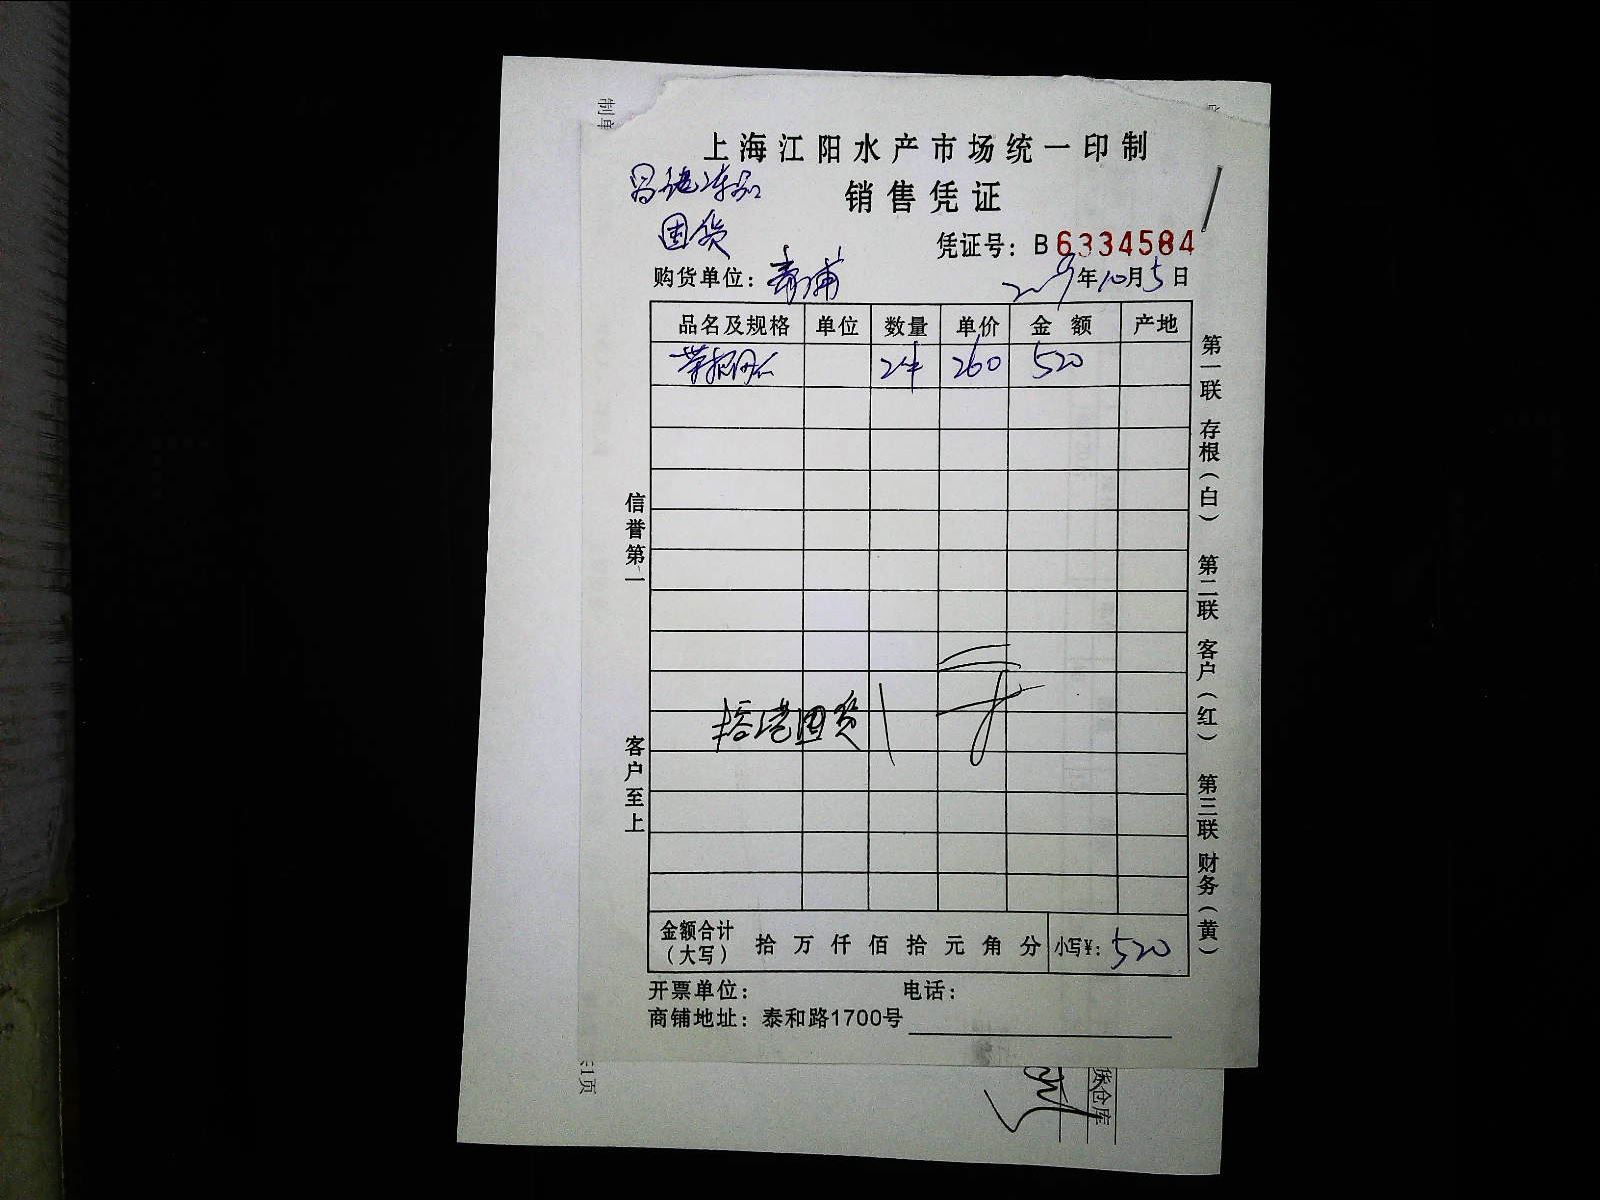 制单
上海江阳水产市场统一印制
销售凭证
国货
凭证号：B6334584
购货单位：青浦
2019年10月5日
品名及规格 单位 数量 单价 金额 产地
24 260 520
信誉第一
客户至上
国货
第一联 存根（白） 第二联 客户（红） 第三联 财务（黄）
金额合计（大写） 拾 万 仟 佰 拾 元 角 分 小写¥：520
开票单位： 电话：
商铺地址：泰和路1700号
仓库